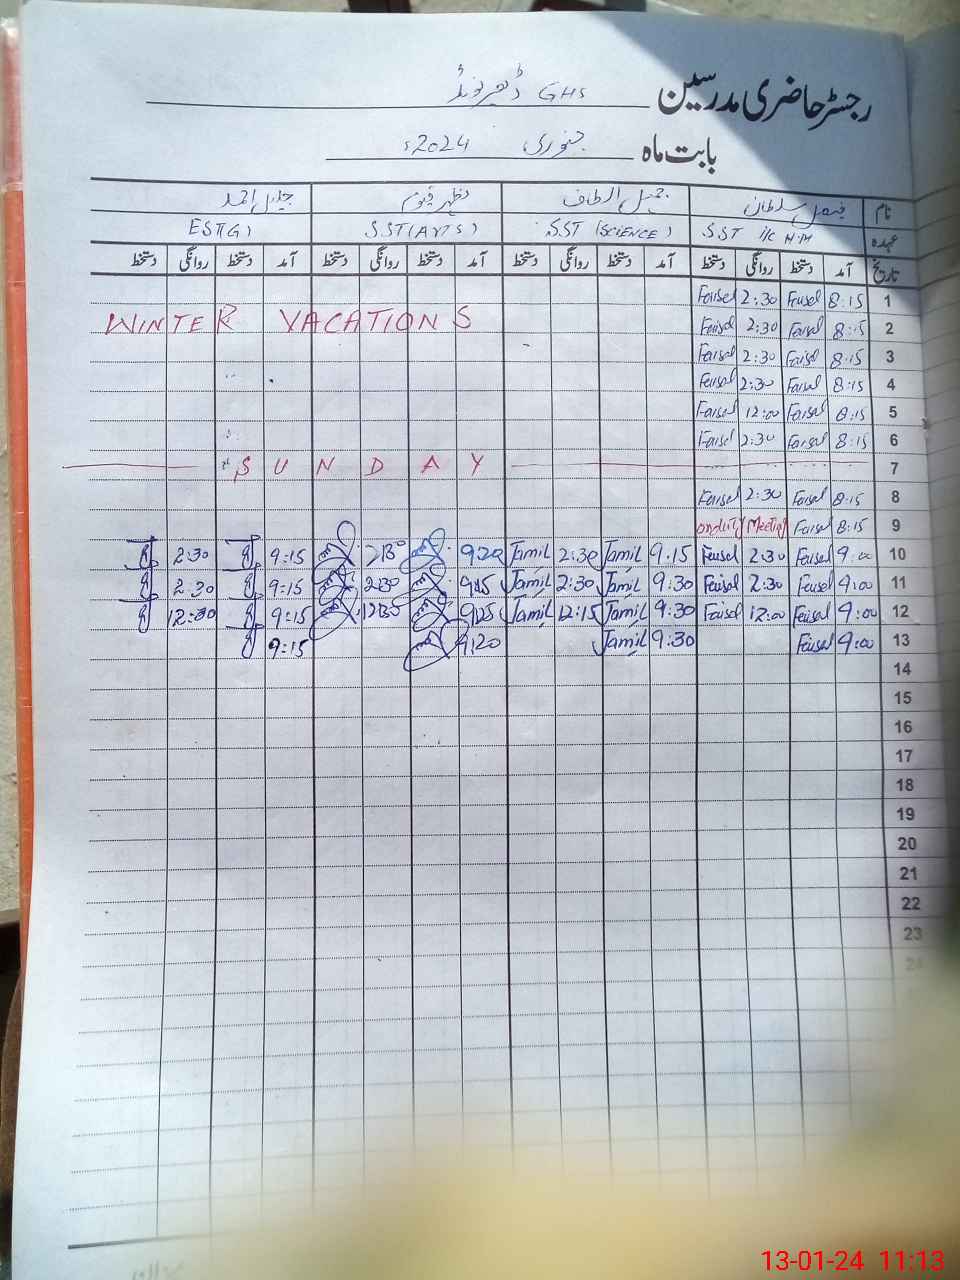 رجسٹر حاضری مدرسین GHS
بابت ماہ جنوری 2024ء
نام فیصل سلطان جمیل الطاف مظہر قیوم جلیل احمد
عہدہ SST I/C H.M SST (SCIENCE) S.ST (ARTS) EST(G)
تاریخ آمد دستخط روانگی دستخط آمد دستخط روانگی دستخط آمد دستخط روانگی دستخط آمد دستخط روانگی دستخط
1 8:15 Faisal 2:30 Faisal
WINTER VACATIONS
2 8:15 Faisal 2:30 Faisal
3 8:15 Faisal 2:30 Faisal
4 8:15 Faisal 2:30 Faisal
5 8:15 Faisal 12:00 Faisal
6 8:15 Faisal 2:30 Faisal
7 SUNDAY
8 8:15 Faisal 2:30 Faisal
9 8:15 Faisal onduty Meeting
10 9:00 Faisal 2:30 Faisal 9:15 Jamil 2:30 Jamil 9:20 2:30 9:15 2:30
11 9:00 Faisal 2:30 Faisal 9:30 Jamil 2:30 Jamil 9:25 2:30 9:15 2:30
12 9:00 Faisal 12:00 Faisal 9:30 Jamil 12:15 Jamil 9:25 12:30 9:15 12:30
13 9:00 Faisal 9:30 Jamil 9:20 9:15
14
15
16
17
18
19
20
21
22
23
24
13-01-24 11:13